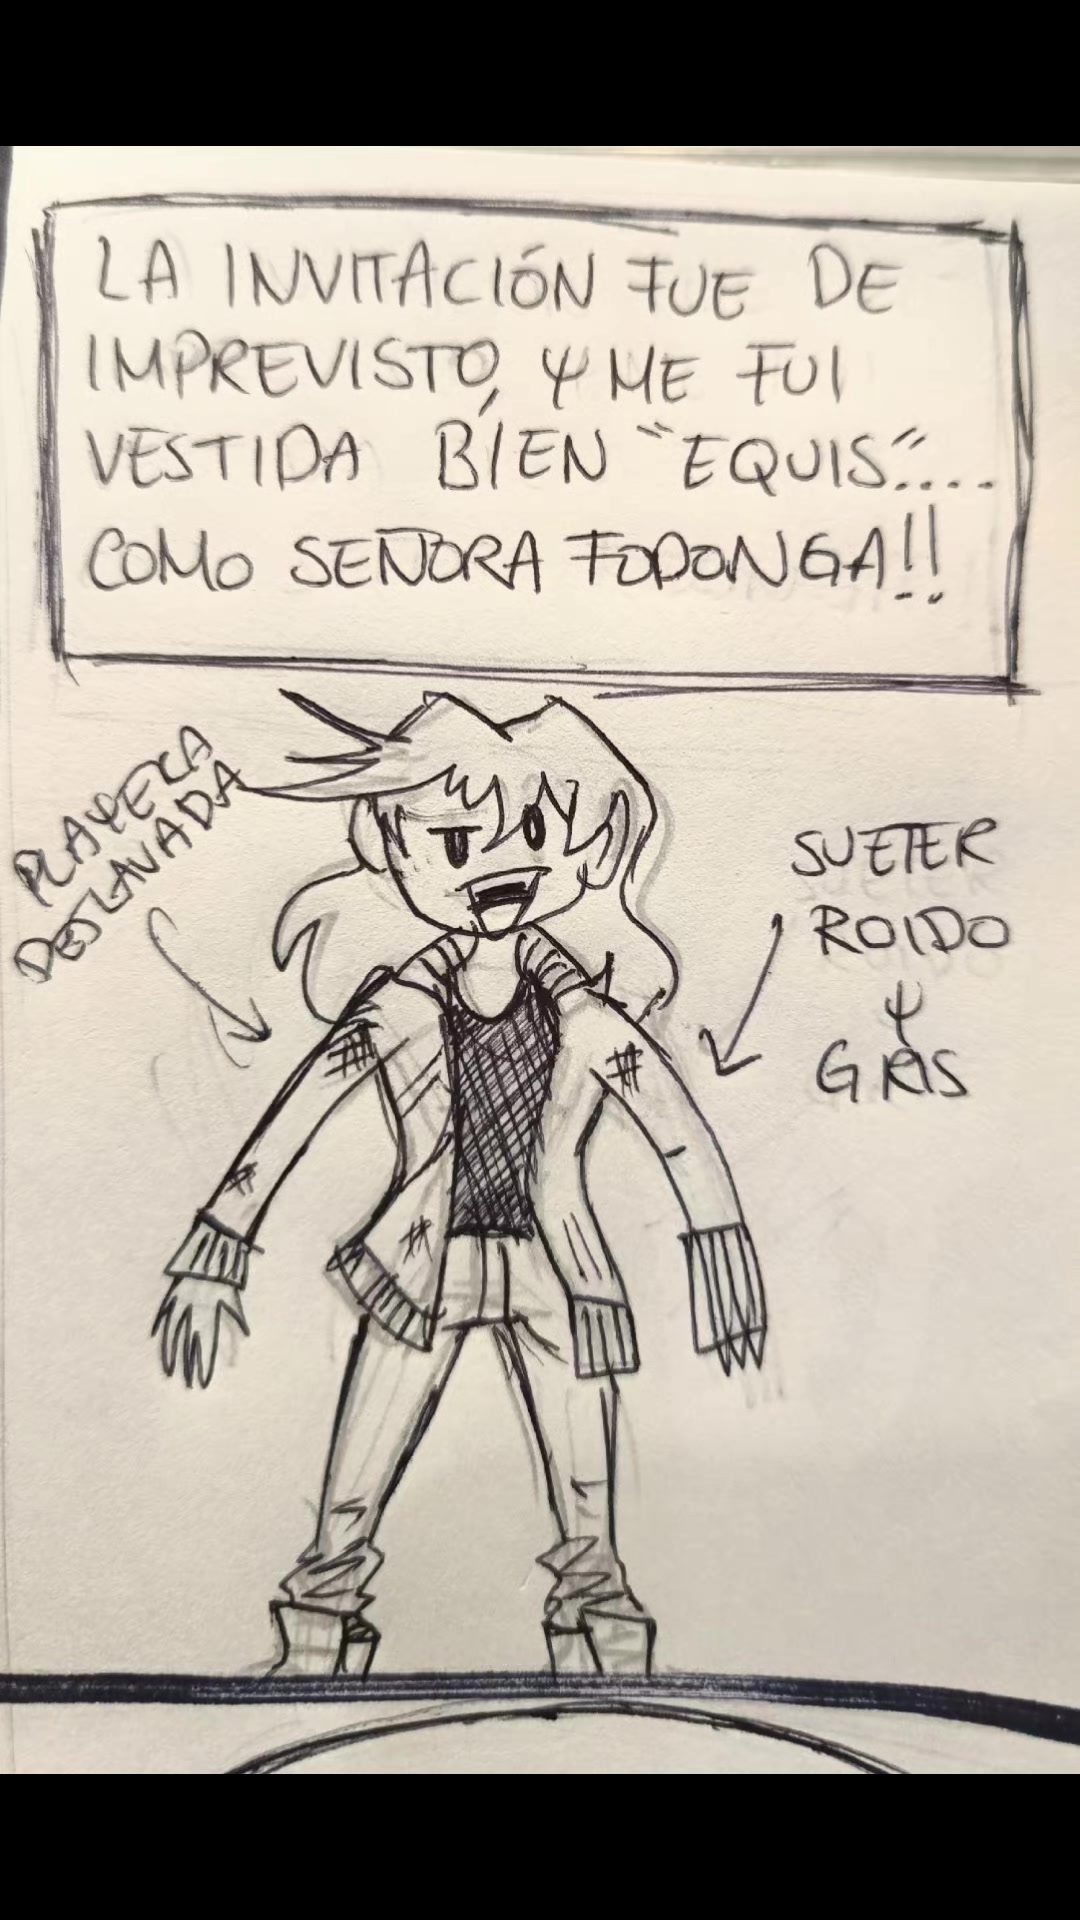 LA INVITACIÓN FUE DE
IMPREVISTO, Y ME FUI
VESTIDA BÍEN "EQUIS"....
COMO SEÑORA FODONGA!!
PLAYERA
DESLAVADA
SUETER
ROIDO
Y
GRIS